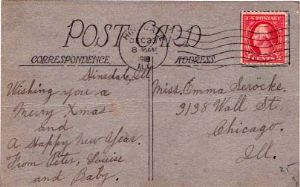 POST CARD
CORRESPONDENCE
ADDRESS
DEC 23
8 AM
ILL.
U.S. POSTAGE
CENTS
Hinsdale, Ill
Wishing you a
Merry Xmas
and
A Happy New Year.
From Peter, Louise
and Baby.
Miss, Emma
3138 Wall St.
Chicago.
Ill.
25